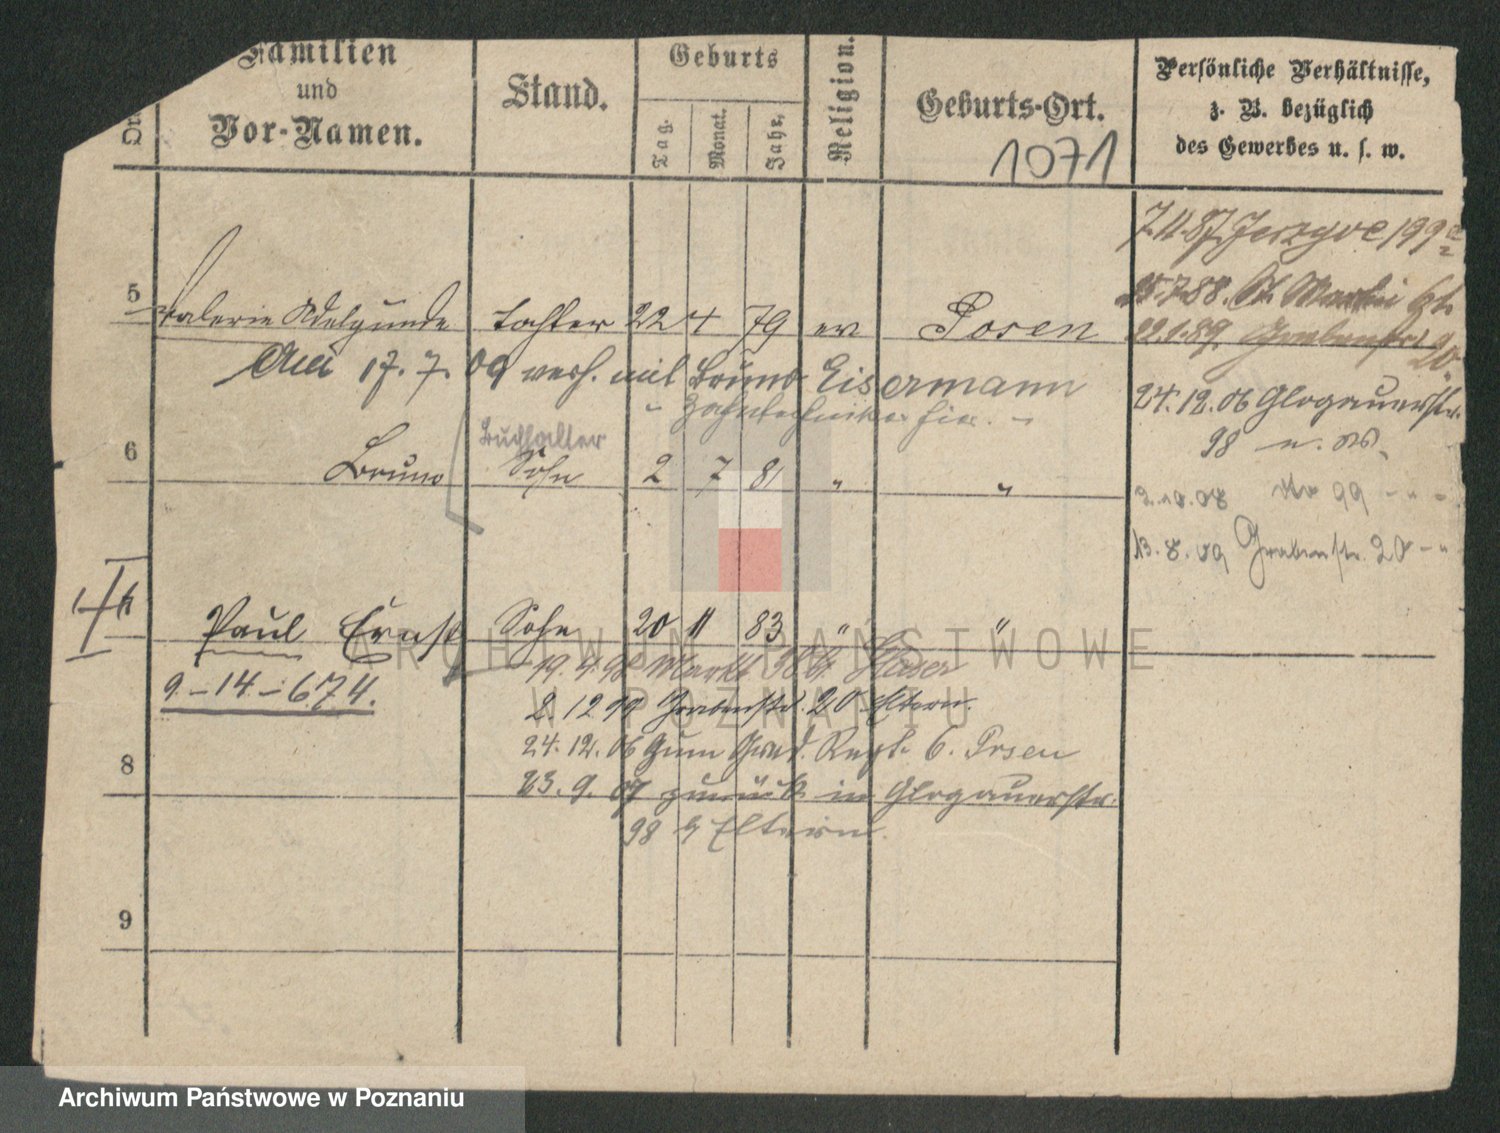 Familien
und
Vor-Namen.
Stand.
Geburts
Tag.
Monat.
Jahr.
Religion.
Geburts-Ort.
Persönliche Verhältnisse,
z. B. bezüglich
des Gewerbes u. s. w.
1071
7.11.87. Jerzyce 199
5 Valerie Adelgunde Tochter 22 4 79 ev Posen
25.7.88. St. Martin
22.1.89. Grabenstr 20
Am 17. 7. 09 verh. mit Bruno Eisermann
Zahntechniker hier.
24.12.06 Glogauerstr.
98
6 Bruno Buchhalter
Sohn 2 7 81 " "
2.10.08 99
13.8.09 Grabenstr. 20
Paul Ernst Sohn 20 11 83 " "
9-14-674.
19.4.98 Markt
2.12.99 Grabenstr. 20 Eltern.
24.12.06 zum Gren. Regt. 6. Posen
8
23.9.07 zurück in Glogauerstr.
98 Eltern.
9
ARCHIWUM PAŃSTWOWE
W POZNANIU
Archiwum Państwowe w Poznaniu